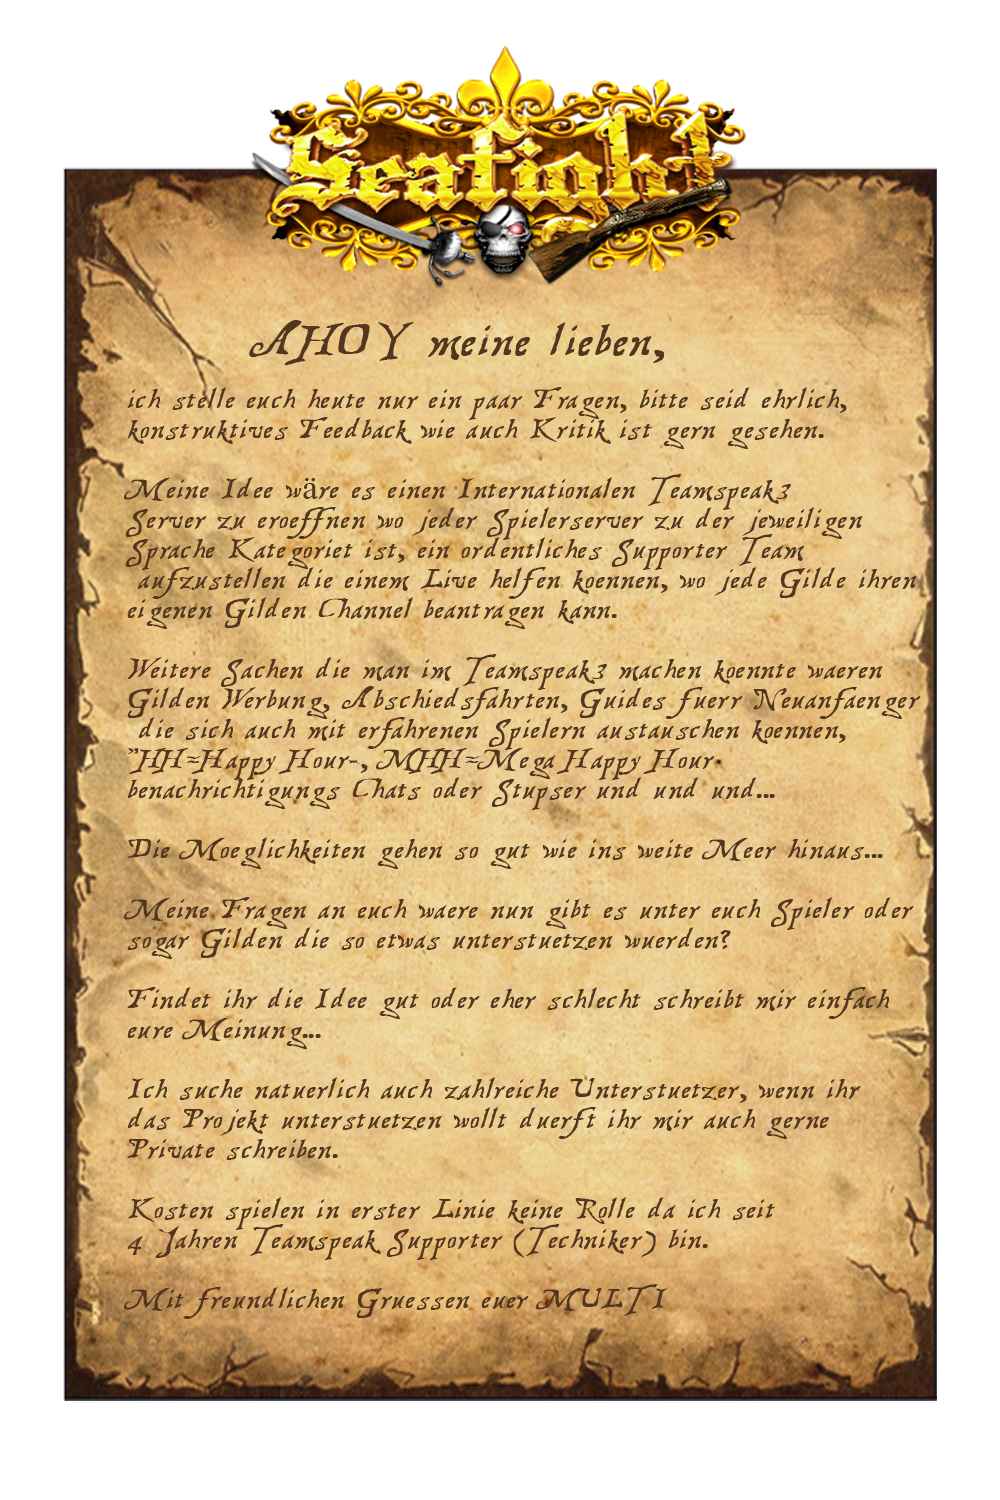 Seafight
AHOY meine lieben,
ich stelle euch heute nur ein paar Fragen, bitte seid ehrlich,
konstruktives Feedback wie auch Kritik ist gern gesehen.
Meine Idee wäre es einen Internationalen Teamspeak3
Server zu eroeffnen wo jeder Spielerserver zu der jeweiligen
Sprache Kategoriet ist, ein ordentliches Supporter Team
aufzustellen die einem Live helfen koennen, wo jede Gilde ihren
eigenen Gilden Channel beantragen kann.
Weitere Sachen die man im Teamspeak3 machen koennte waeren
Gilden Werbung, Abschiedsfahrten, Guides fuerr Neuanfaenger
die sich auch mit erfahrenen Spielern austauschen koennen,
"HH=Happy Hour-, MHH=Mega Happy Hour"
benachrichtigungs Chats oder Stupser und und und...
Die Moeglichkeiten gehen so gut wie ins weite Meer hinaus...
Meine Fragen an euch waere nun gibt es unter euch Spieler oder
sogar Gilden die so etwas unterstuetzen wuerden?
Findet ihr die Idee gut oder eher schlecht schreibt mir einfach
eure Meinung...
Ich suche natuerlich auch zahlreiche Unterstuetzer, wenn ihr
das Projekt unterstuetzen wollt duerft ihr mir auch gerne
Private schreiben.
Kosten spielen in erster Linie keine Rolle da ich seit
4 Jahren Teamspeak Supporter (Techniker) bin.
Mit freundlichen Gruessen euer MULTI